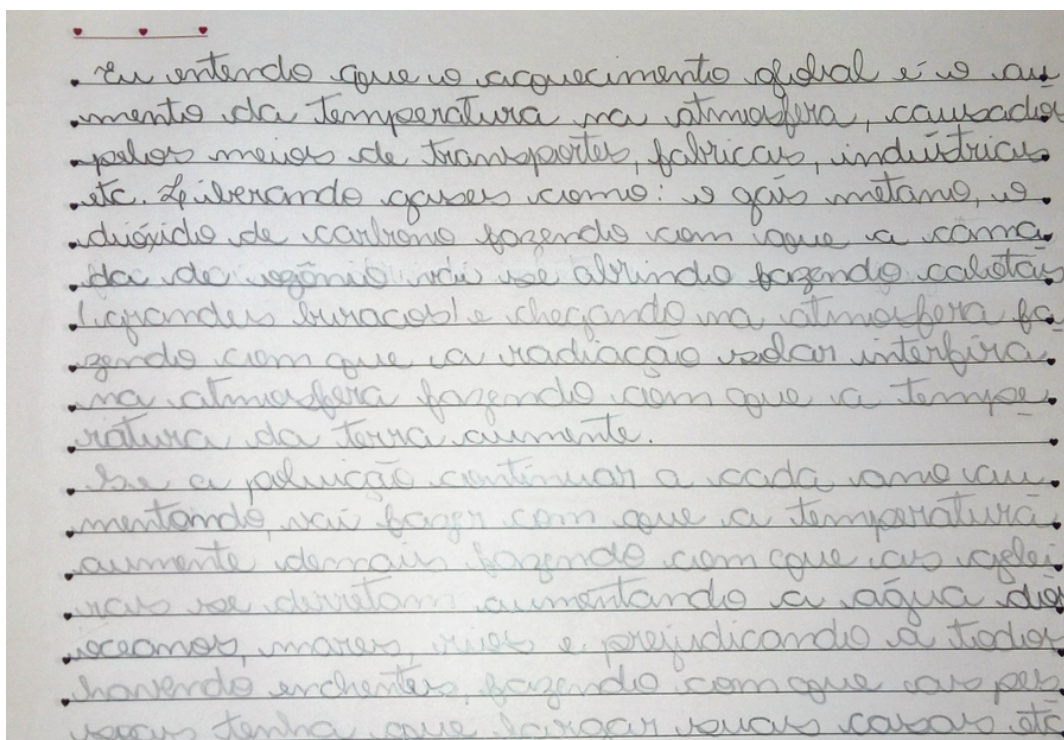 Eu entendo que o aquecimento global é o au
mento da temperatura na atmosfera, causado
pelos meios de transportes, fabricas, indústrias
etc. Liberando gases como: o gás metano, o
dióxido de carbono fazendo com que a câma
da de ozônio vái se abrindo fazendo calotas
(grandes buracos) e chegando na atmosfera fa
zendo com que a radiação solar interfira
na atmosfera fazendo com que a tempe
ratura da terra aumente.
Se a poluição continuar a cada ano au
mentando, vai fazer com que a temperatura
aumente demais fazendo com que as gelei
ras se derretam aumentando a água dos
oceanos, mares, rios e prejudicando a todos
havendo enchentes, fazendo com que as pes
soas tenha que largar suas casas etc